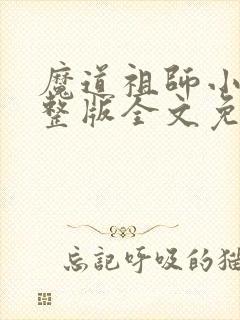 魔道祖師小
整版全文免
忘記呼吸的猫